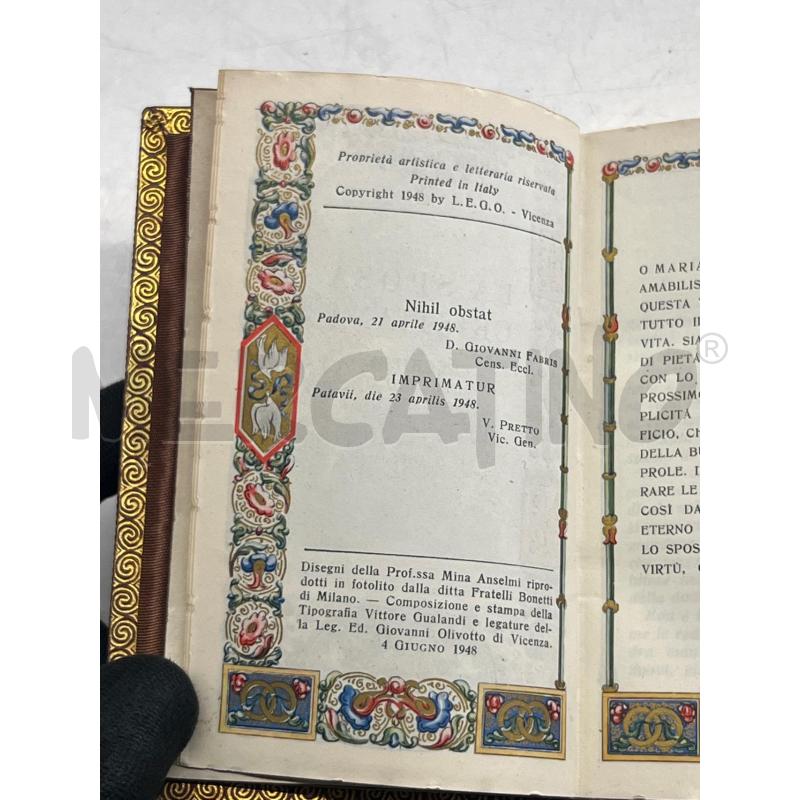 Proprietà artistica e letteraria riservata
Printed in Italy
Copyright 1948 by L.E.G.O. - Vicenza
Nihil obstat
Padova, 21 aprile 1948.
D. GIOVANNI FABRIS
Cens. Eccl.
IMPRIMATUR
Patavii, die 23 aprilis 1948.
V. PRETTO
Vic. Gen.
Disegni della Prof.ssa Mina Anselmi ripro-
dotti in fotolito dalla ditta Fratelli Bonetti
di Milano. — Composizione e stampa della
Tipografia Vittore Gualandi e legature del-
la Leg. Ed. Giovanni Olivotto di Vicenza.
4 GIUGNO 1948
O MARIA
AMABILIS
QUESTA
TUTTO I
VITA. SIA
DI PIETÀ
CON LO
PROSSIMO
PLICITÀ
FICIO, CH
DELLA BU
PROLE. I
RARE LE
COSÌ DA
ETERNO
LO SPOS
VIRTÙ,
MERCATINO®